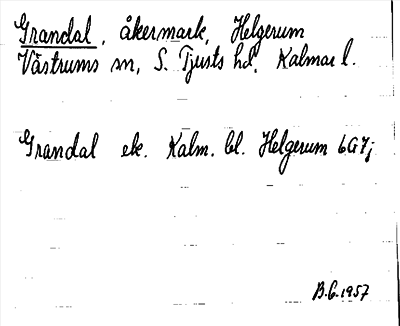 Grandal, åkermark, Helgerum
Västrums sn, S. Tjusts hd, Kalmar l.
Grandal ek. Kalm. bl. Helgerum 6G7j
B.G. 1957